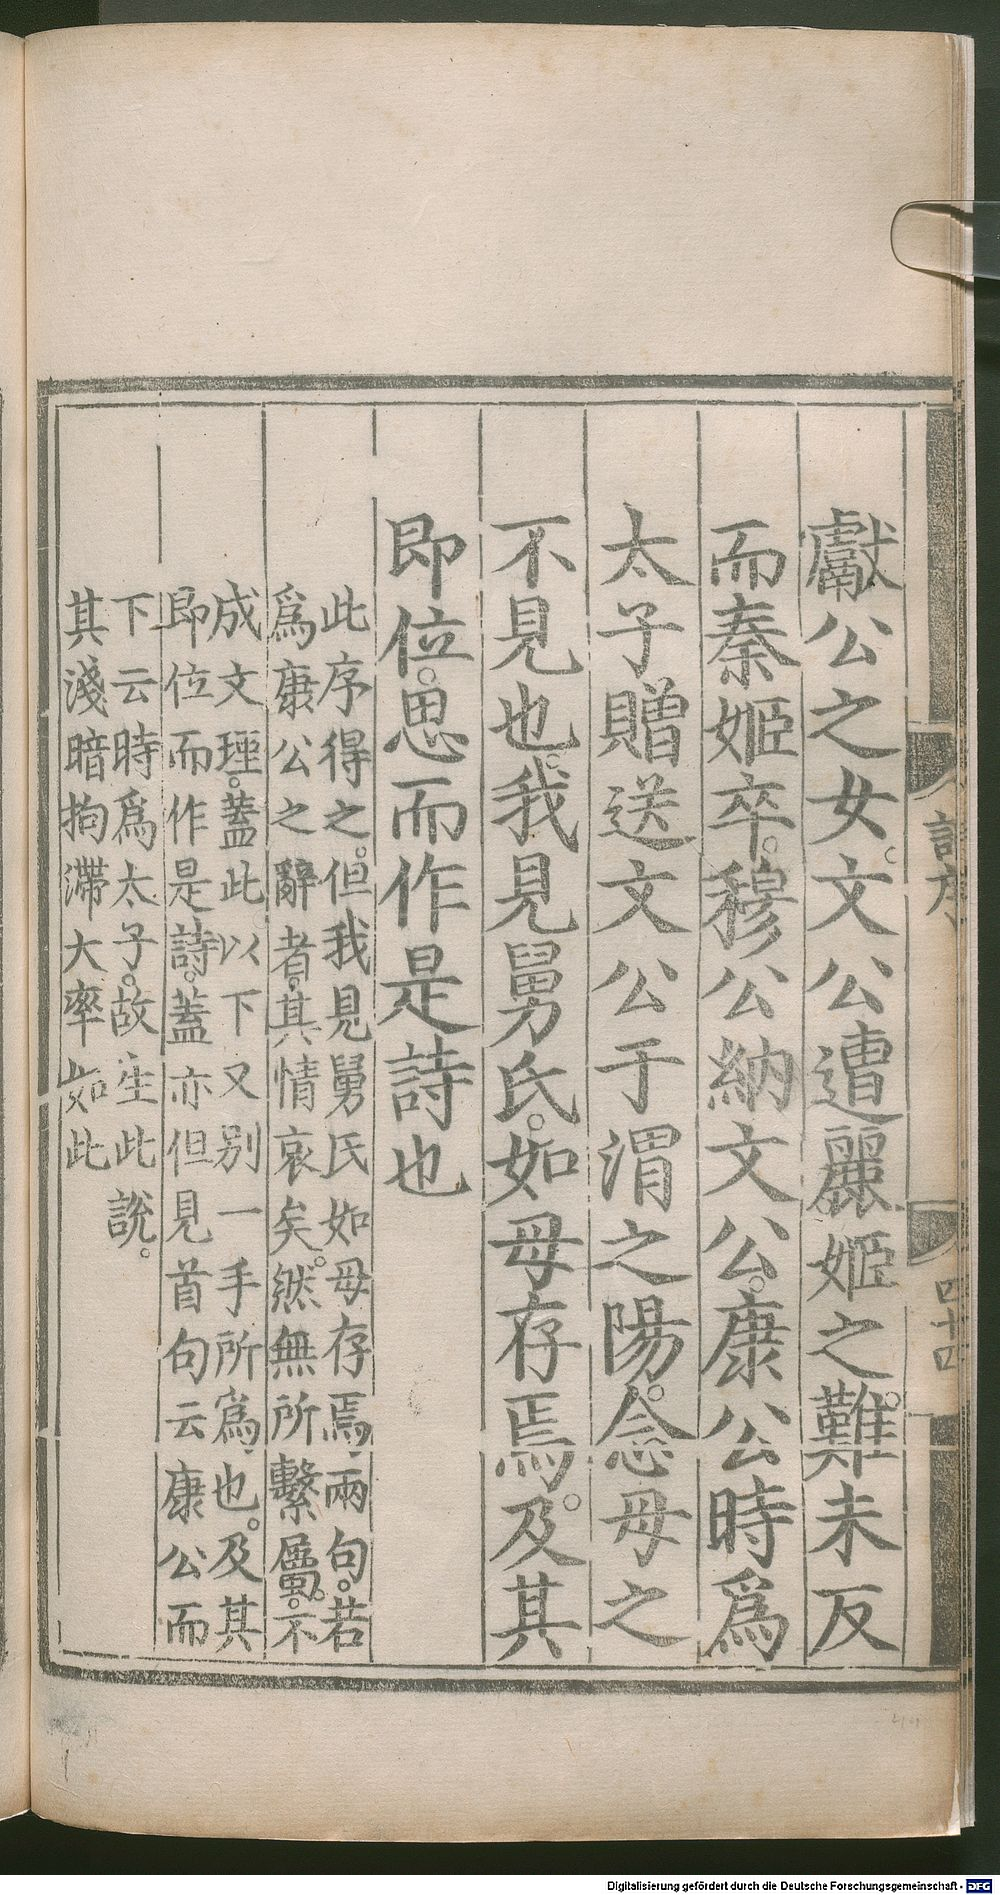 獻公之女。文公遭麗姬之難。未反
而秦姬卒。穆公納文公。康公時爲
太子贈送文公于渭之陽。念母之
不見也。我見舅氏。如母存焉。及其
即位。思而作是詩也
此序得之。但我見舅氏如母存焉兩句。若
爲康公之辭者。其情哀矣。然無所繫屬。不
成文理。蓋此以下又别一手所爲也。及其
即位而作是詩。蓋亦但見首句云康公而
下云時爲太子。故生此說。
其淺暗拘滯大率如此
詩序
四十四
Digitalisierung gefördert durch die Deutsche Forschungsgemeinschaft - DFG